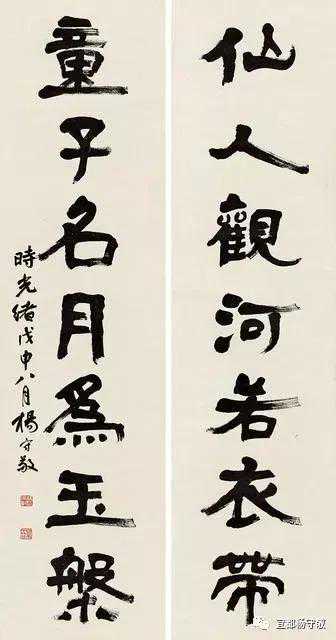 仙人觀河若衣帶
童子名月為玉盤
時光緒戊申八月楊守敬
宜都杨守敬